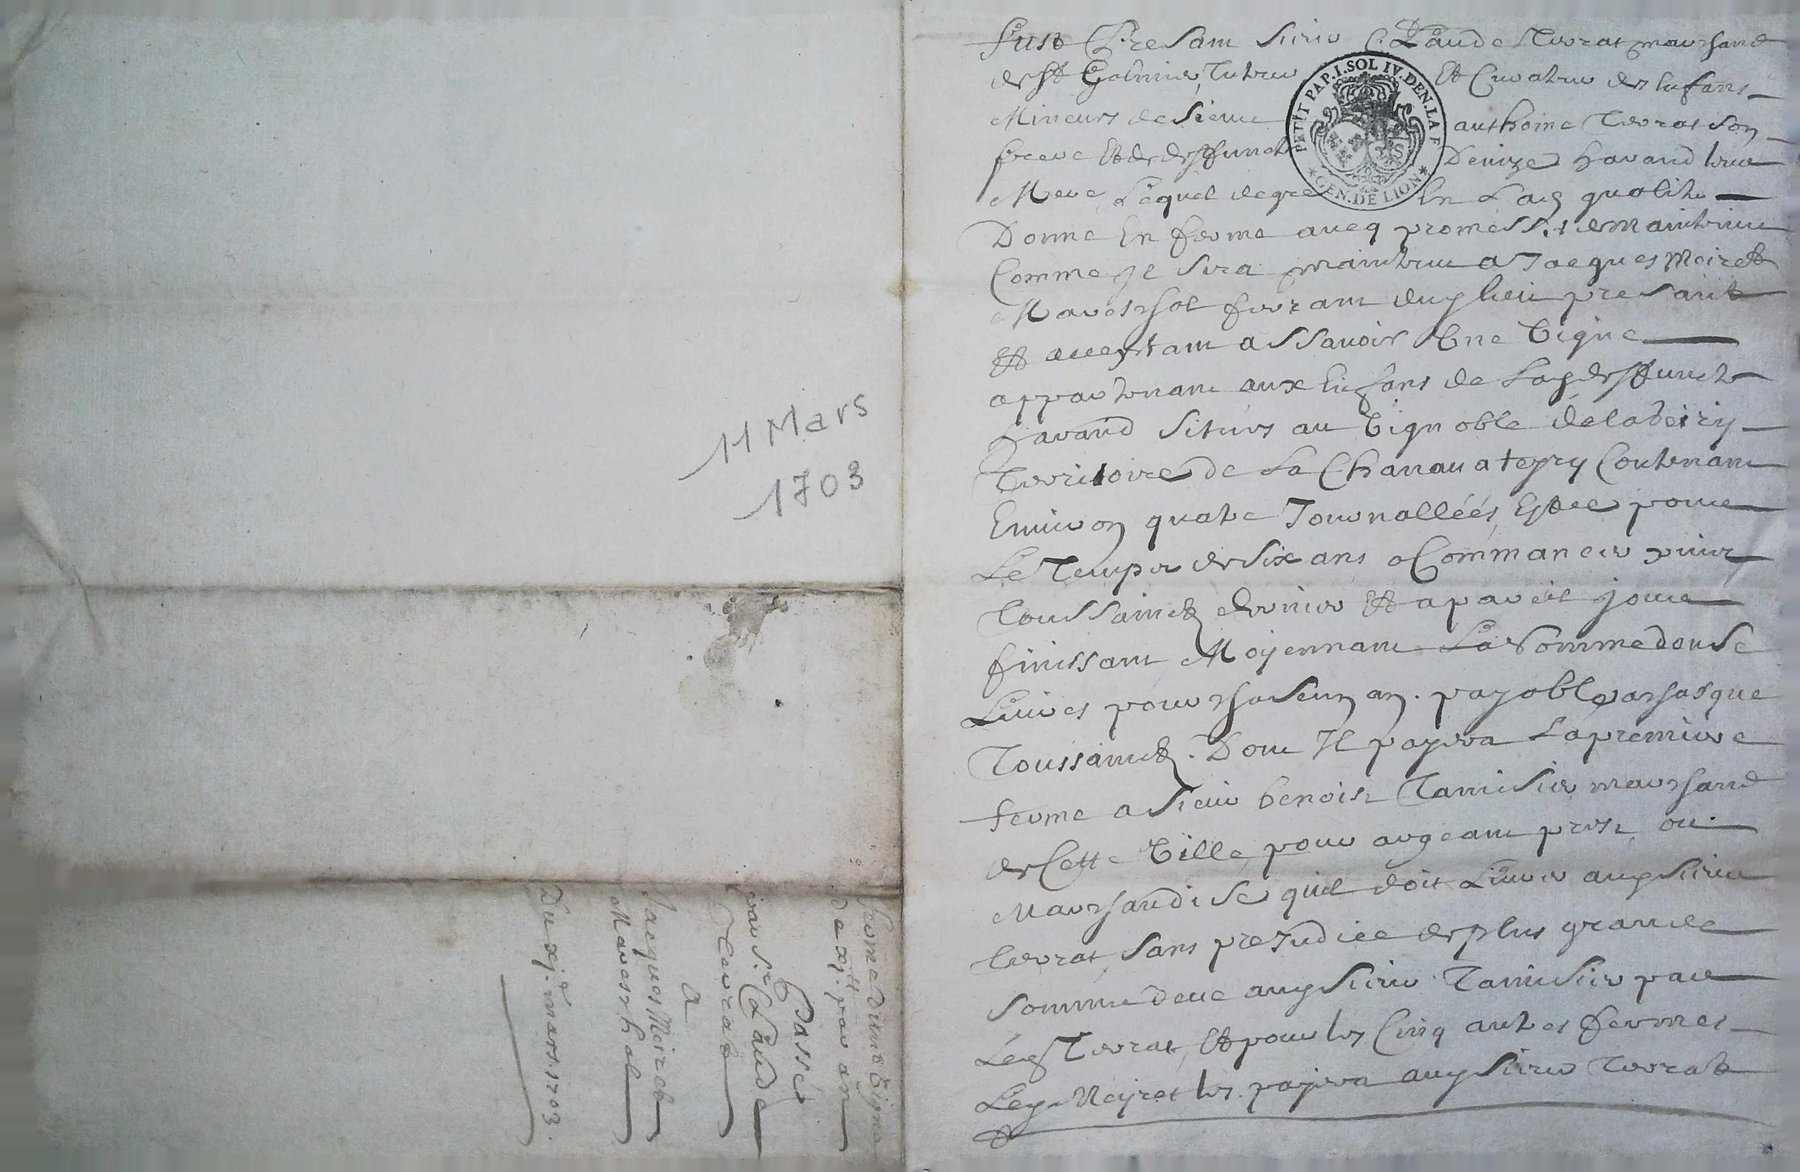 11 Mars
1703
ferme d'une vigne
de xj.lt par an
Passée
par Sr Claude
Terrat
A
Jacques Meiret
Mareschal
Du xj.e mars. 1703.
PETIT PAP. I. SOL IV. DEN. LA F
GEN. DE LION
fust Presant sieur Claude Terrat marchand
de St Galmier Tuteur Et Curateur des Enfans
Mineurs de sieur anthoine Terrat son
frere Et de deffuncte Denize havard leur
Mere, Lequel de gre En Lad qualite
Donne En ferme avecq promesse de maintenir
Comme Il sera maintenu a Jacques Meiret
Mareschal ferrant dud lieu presant
Et acceptant a Ssavoir Une Vigne
appartenant aux Enfans de Lad deffuncte
havard située au Vignoble de
Territoire de La Contenant
Environ quatre Journallées, Et ce pour
Le Temps de six ans a Commancer puis
Toussainctz dernier Et a pareil jour
finissant Moyennant La somme d'onse
Livres pour chascung an. payable a chasque
Toussainctz. Dont Il payera La premiere
ferme a sieur benoist Tamisier marchand
de Cette Ville, pour argeant prest, ou
Marchandise quil doit Livrer aud sieur
Terrat, sans prejudice de plus grande
somme deue aud sieur Tamisier par
Led Terrat, Et pour les Cinq autres fermes
Led Meyret les payera aud sieur Terrat
Et